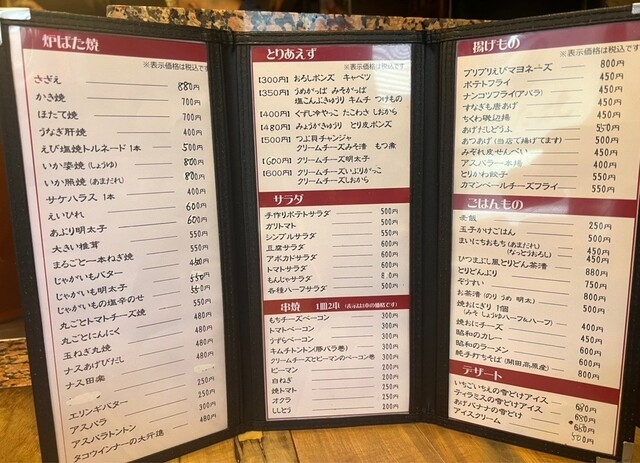 炉ばた焼
※表示価格は税込です
さざえ 880円
かき焼 700円
ほたて焼 700円
うなぎ肝焼 400円
えび塩焼トルネード 1本 500円
いか姿焼(しょうゆ) 800円
いか照焼(あまだれ) 800円
サケハラス 1本 400円
えいひれ 600円
あぶり明太子 600円
大きい椎茸 550円
まるごと一本ねぎ焼
じゃがいもバター
じゃがいも明太子
じゃがいもの塩辛のせ 550円
丸ごとトマトチーズ焼 550円
丸ごとにんにく 480円
玉ねぎ丸焼 480円
ナスあげびだし 480円
ナス田楽 480円
エリンギバター 250円
アスパラ 250円
アスパラトントン 300円
タコウインナーの大行進 480円
とりあえず
※表示価格は税込です
【300円】 おろしポンズ キャベツ
【350円】 うめがっぱ みそがっぱ
塩こんぶきゅうり キムチ つけもの
【400円】 くずし冷やっこ たこわさ しおから
【480円】 みょうがきゅうり とり皮ポンズ
【500円】 つぶ貝チャンジャ
クリームチーズみそ漬 もつ煮
【600円】 クリームチーズ明太子
【600円】 クリームチーズいぶりがっこ
クリームチーズしおから
サラダ
手作りポテトサラダ 500円
ガリトマト 500円
シンプルサラダ 550円
豆腐サラダ
アボカドサラダ
トマトサラダ
もんじゃサラダ
各種ハーフサラダ
串焼 1皿2本 (表示は1本の価格です)
もちチーズベーコン 300円
トマトベーコン 300円
うずらベーコン 300円
キムチトントン(豚バラ巻) 300円
クリームチーズとピーマンのベーコン巻 300円
ピーマン 200円
白ねぎ 200円
焼トマト 200円
オクラ 200円
ししとう 200円
揚げもの
※表示価格は税込です
プリプリえびマヨネーズ 800円
ポテトフライ 450円
ナンコツフライ(アバラ) 450円
すなぎも唐あげ 450円
ちくわ磯辺揚 450円
あげだしどうふ 550円
あつあげ(当店で揚げてます) 500円
みぞれ皮せんべい 450円
アスパラ一本揚 400円
とりかわ餃子 550円
カマンベールチーズフライ 550円
ごはんもの
麦飯 250円
玉子かけごはん 500円
まいにちおもち(あまだれ) 450円
(なっとうおろし) 450円
ひつまぶし風とりどん茶漬 880円
とりどんぶり 750円
ぞうすい 750円
お茶漬(のり うめ 明太) 800円
焼おにぎり 1個
(みそしょうゆハーフ&ハーフ)
焼おにチーズ 400円
昭和のカレー 450円
昭和のラーメン 600円
純手打ちそば(開田高原産) 800円
デザート
いちごいちえの雪どけアイス 680円
ティラミスの雪どけアイス 680円
あげバナナの雪どけ
アイスクリーム